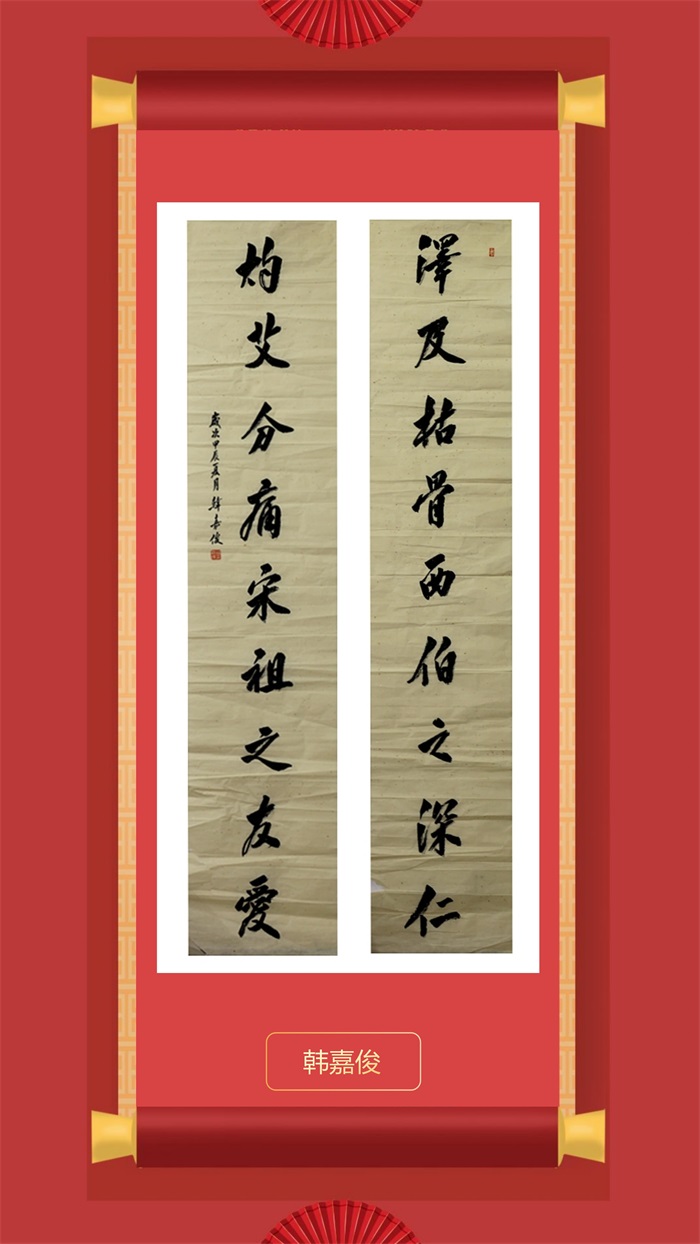 澤及枯骨西伯之深仁
灼艾分痛宋祖之友愛
歲次甲辰夏月韓嘉俊
韩嘉俊